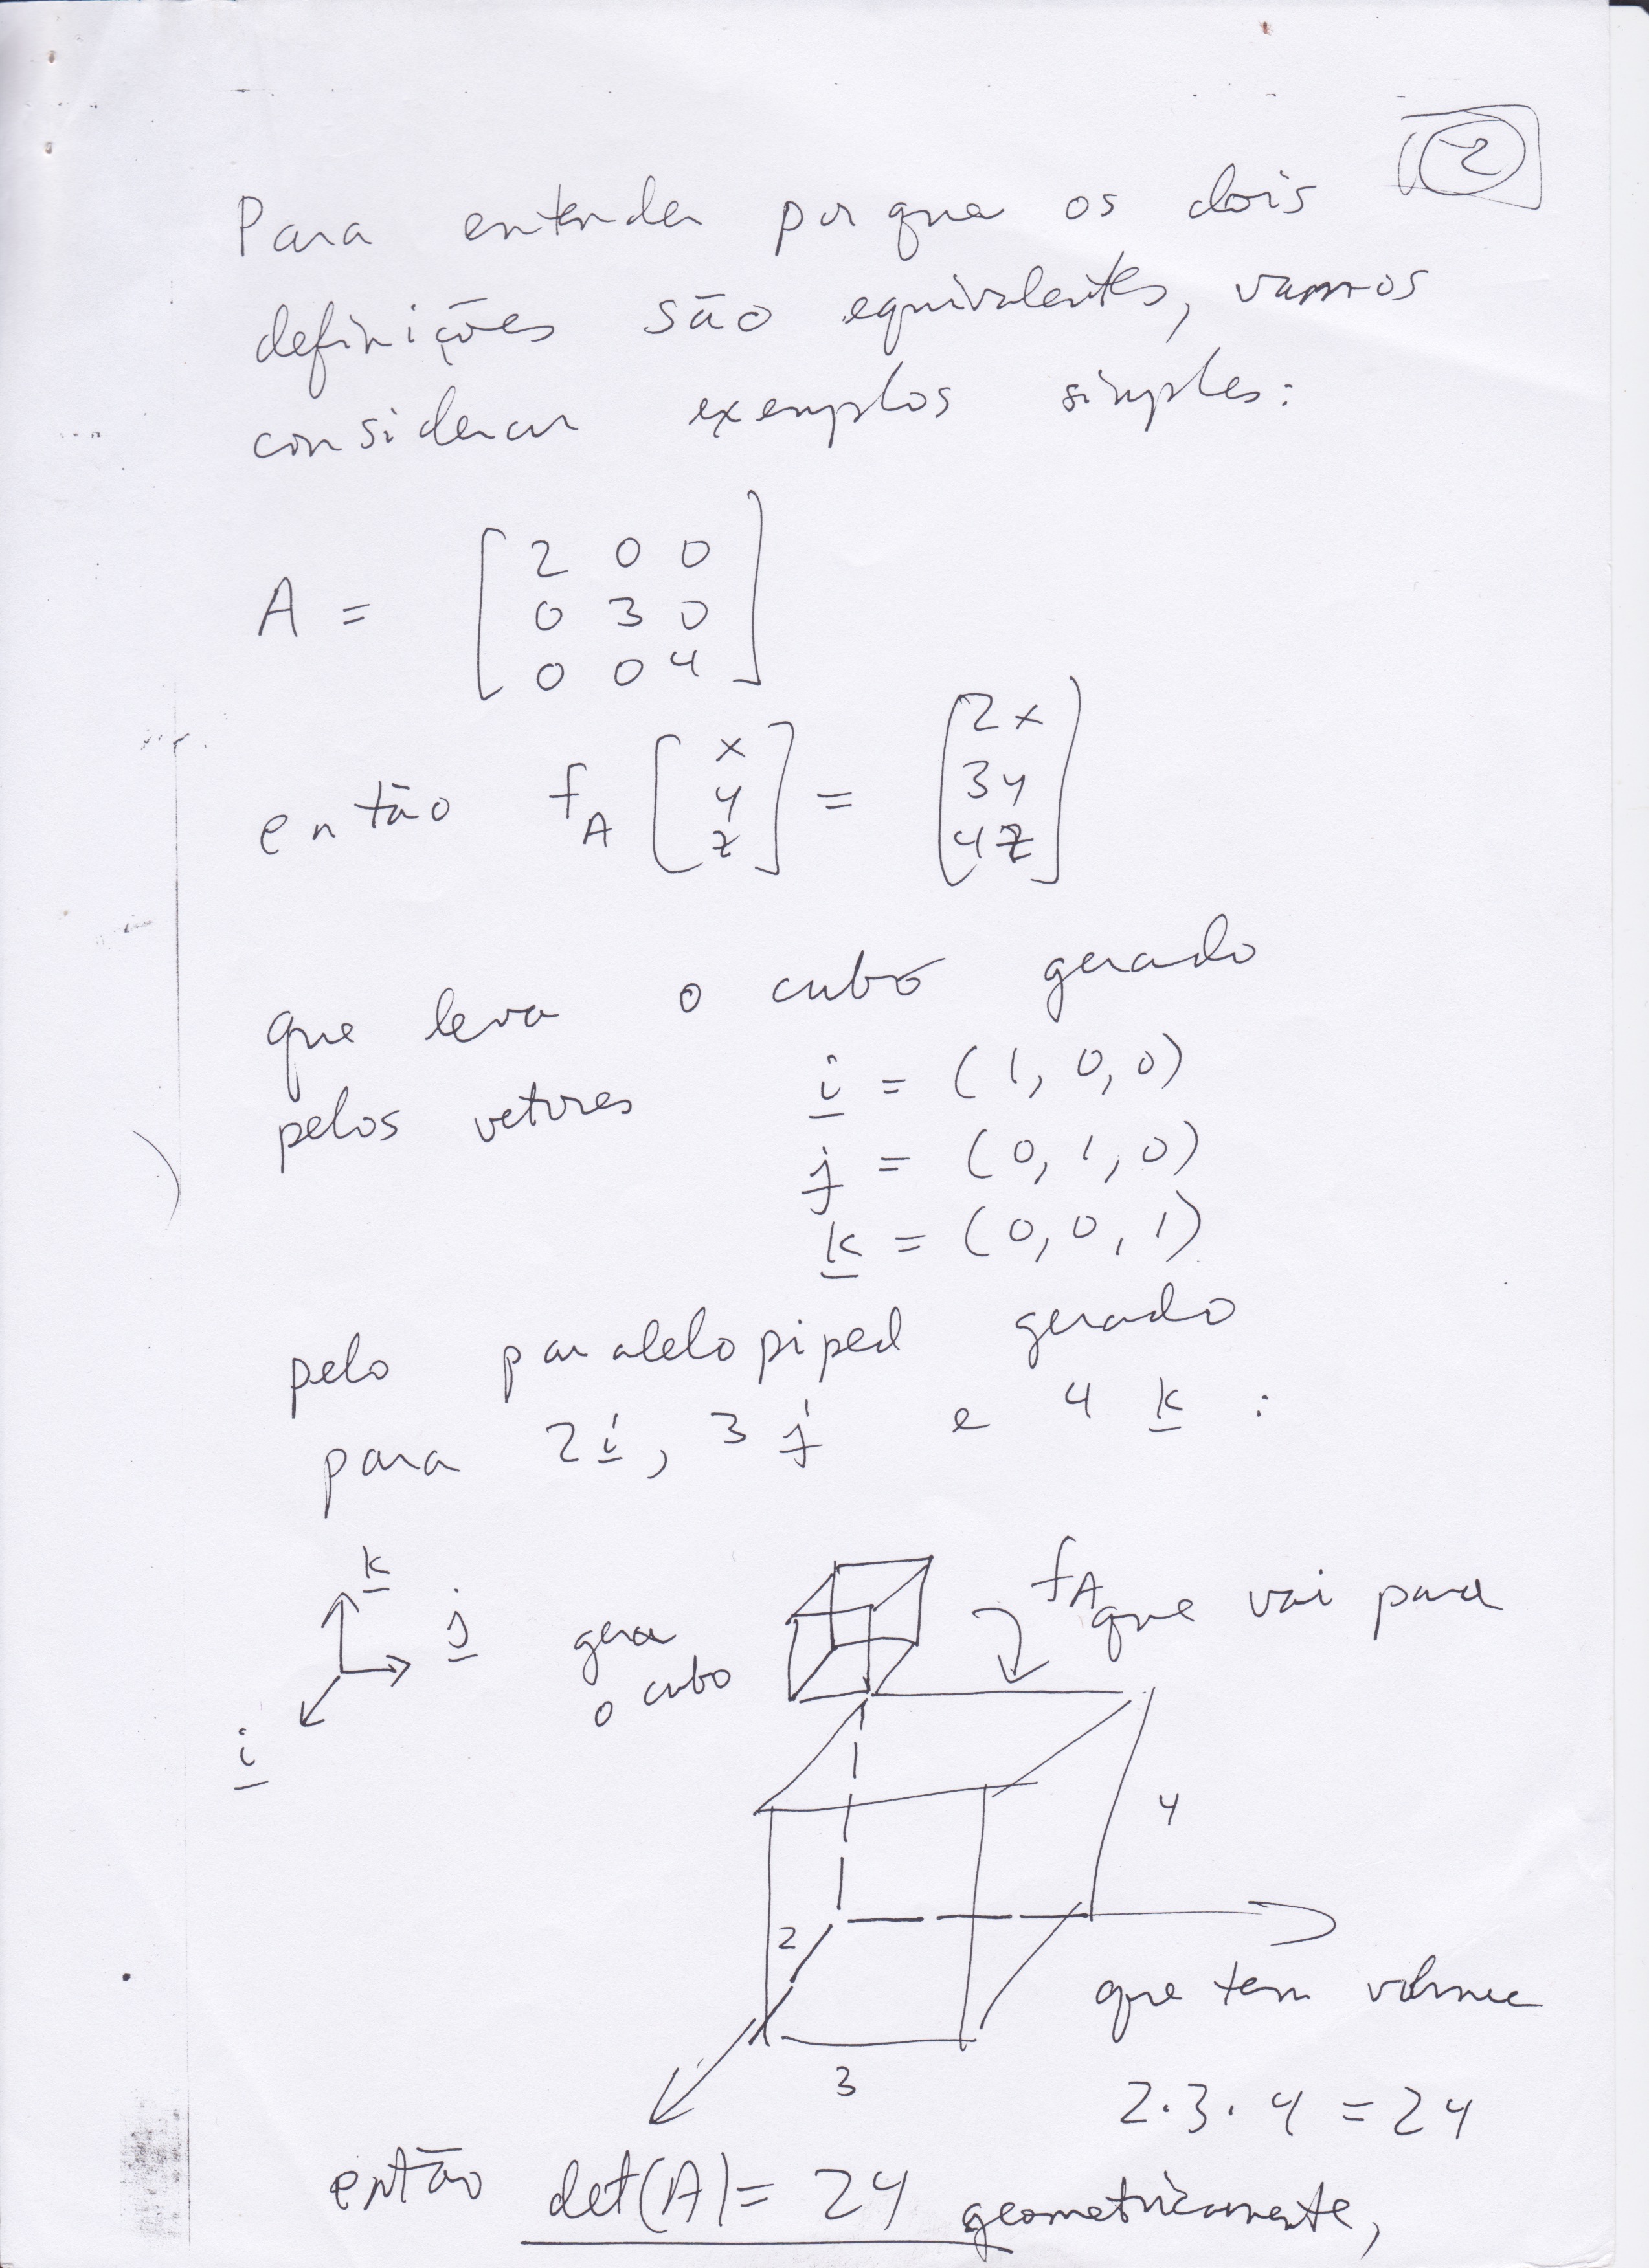 2
Para entender porque os dois
definições são equivalentes, vamos
considerar exemplos simples:
A = [ 2 0 0
0 3 0
0 0 4 ]
então f_A [ x y z ] = [ 2x 3y 4z ]
que leva o cubo gerado
pelos vetores i = (1, 0, 0)
j = (0, 1, 0)
k = (0, 0, 1)
pelo paralelopiped gerado
para 2i, 3j e 4k :
k
j
i
gera
o cubo
f_A que vai para
4
2
3
que tem volume
2·3·4 = 24
então det(A) = 24 geometricamente,